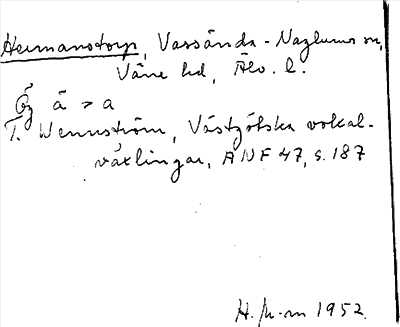 Hermanstorp, Vassända-Naglums sn,
Väne hd, Älv. l.
Ȯg ä > a
T. Wennström, Västgötska vokal-
växlingar, ANF 47, s. 187
H. Js-m 1952.